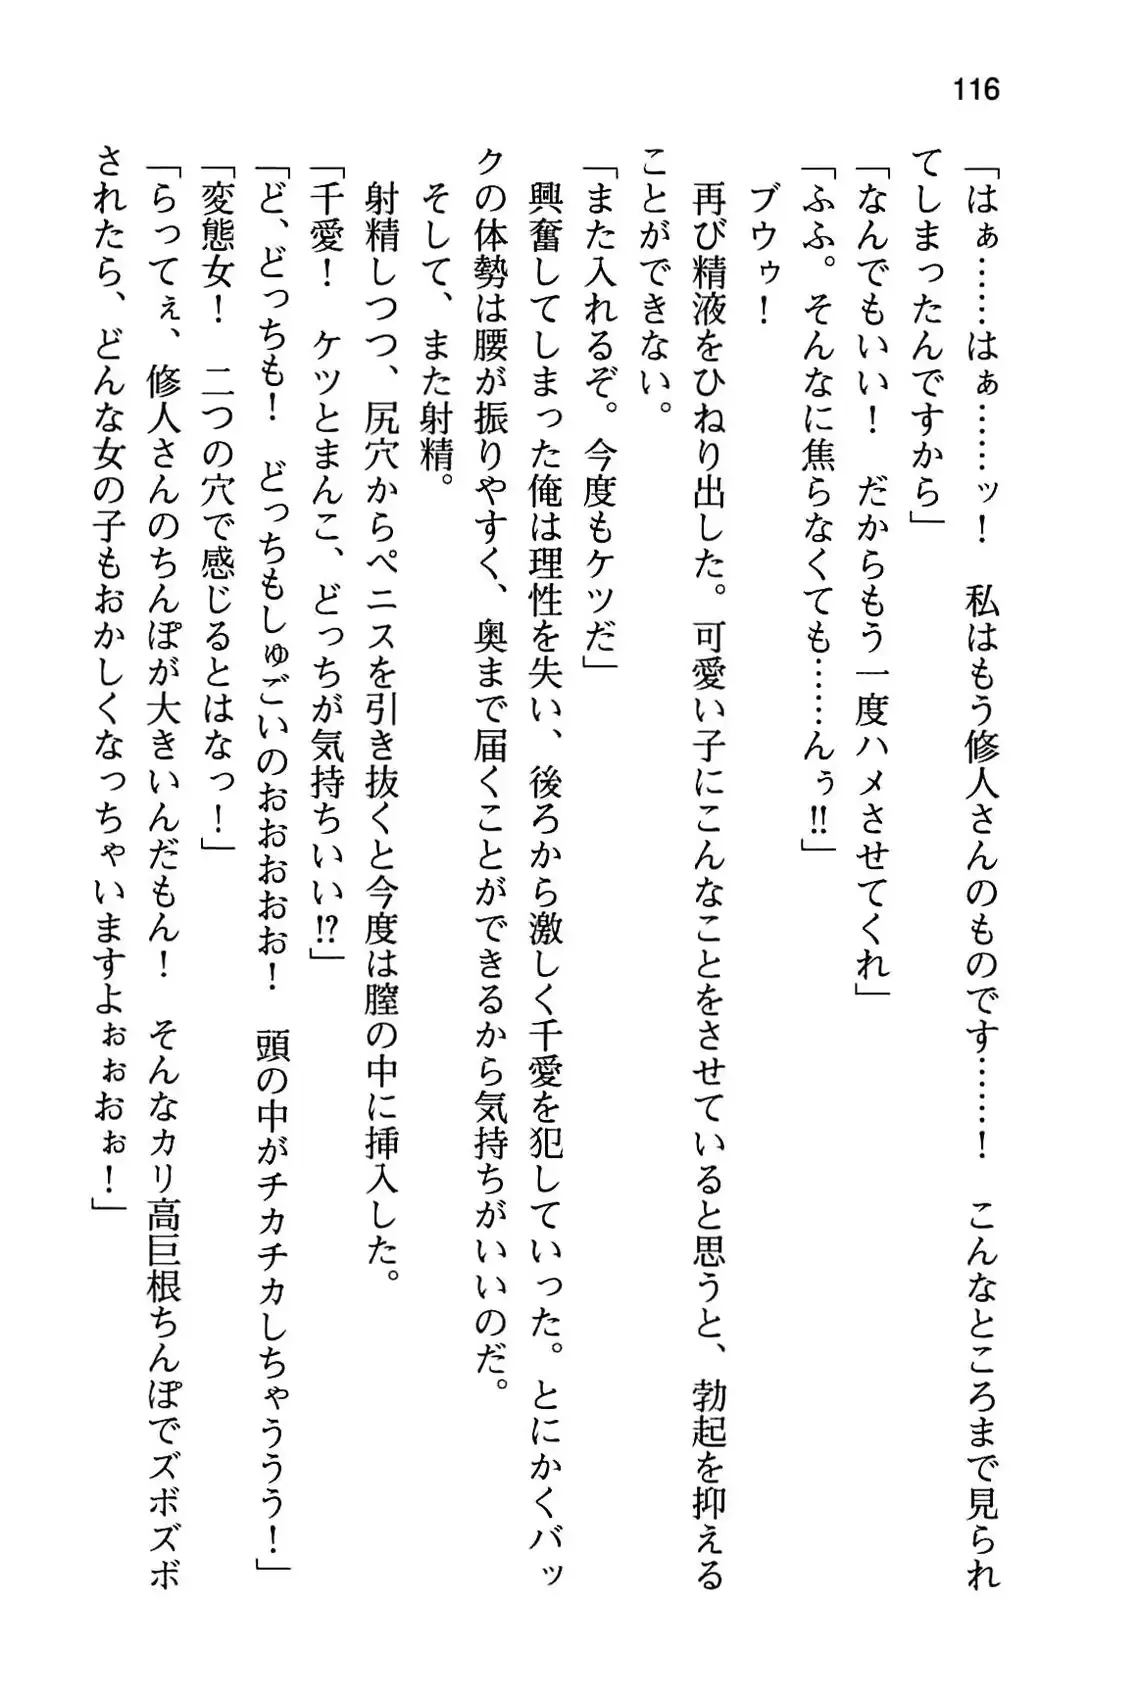 116
「はぁ……はぁ……ッ！　私はもう修人さんのものです……！　こんなところまで見られ
てしまったんですから」
「なんでもいい！　だからもう一度ハメさせてくれ」
「ふふ。そんなに焦らなくても……んぅ!!」
ブウゥ！
再び精液をひねり出した。可愛い子にこんなことをさせていると思うと、勃起を抑える
ことができない。
「また入れるぞ。今度もケツだ」
興奮してしまった俺は理性を失い、後ろから激しく千愛を犯していった。とにかくバッ
クの体勢は腰が振りやすく、奥まで届くことができるから気持ちがいいのだ。
そして、また射精。
射精しつつ、尻穴からペニスを引き抜くと今度は膣の中に挿入した。
「千愛！　ケツとまんこ、どっちが気持ちいい!?」
「ど、どっちも！　どっちもしゅごいのおおおおお！　頭の中がチカチカしちゃううう！」
「変態女！　二つの穴で感じるとはなっ！」
「らってぇ、修人さんのちんぽが大きいんだもん！　そんなカリ高巨根ちんぽでズボズボ
されたら、どんな女の子もおかしくなっちゃいますよぉぉおぉ！」